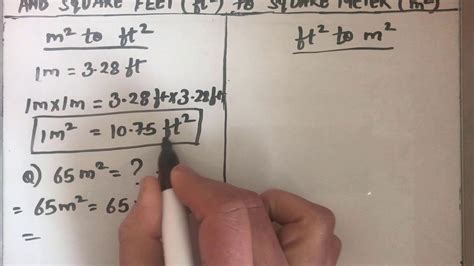 AND SQUARE FEET (ft²) TO SQUARE METER (m²)
m² to ft²
1m = 3.28 ft
1m x 1m = 3.28 ft x 3.28 ft
1m² = 10.75 ft²
Q) 65m² = ?
= 65m² = 65
=
ft² to m²